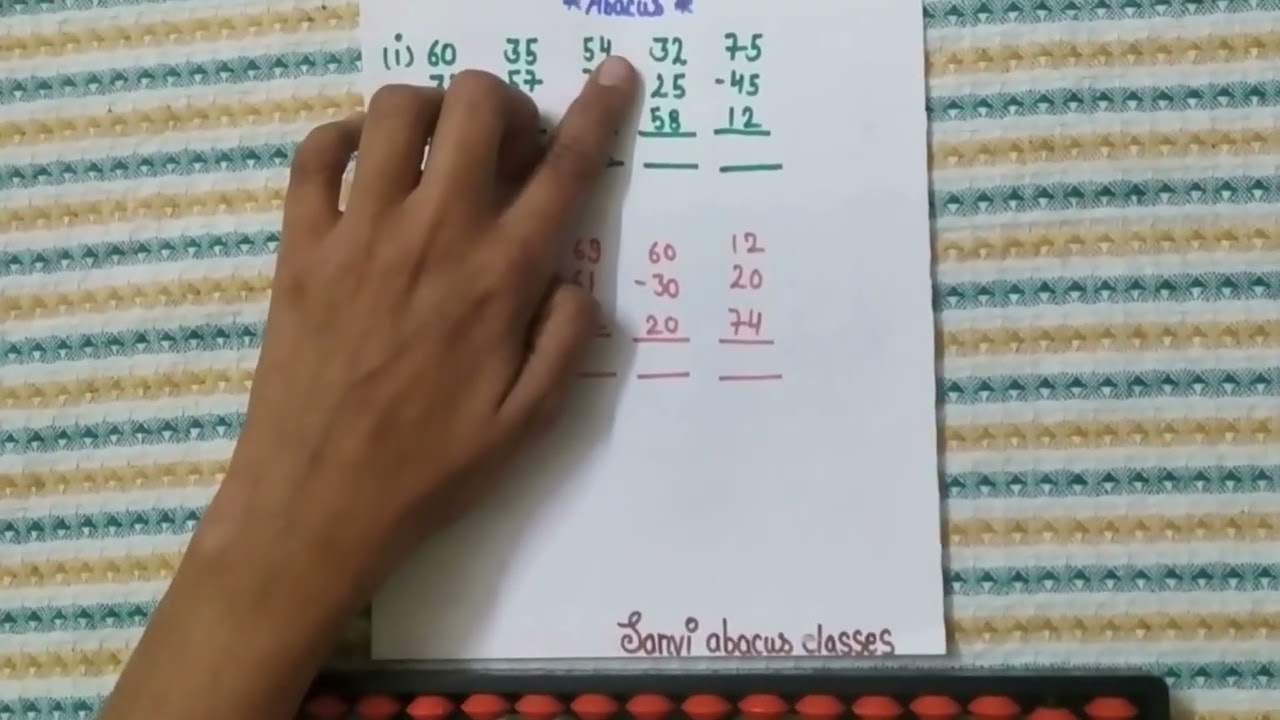 * Abacus *
(i) 60 35 54 32 75
57 25 -45
58 12
69 60 12
61 -30 20
20 74
Sanvi abacus classes